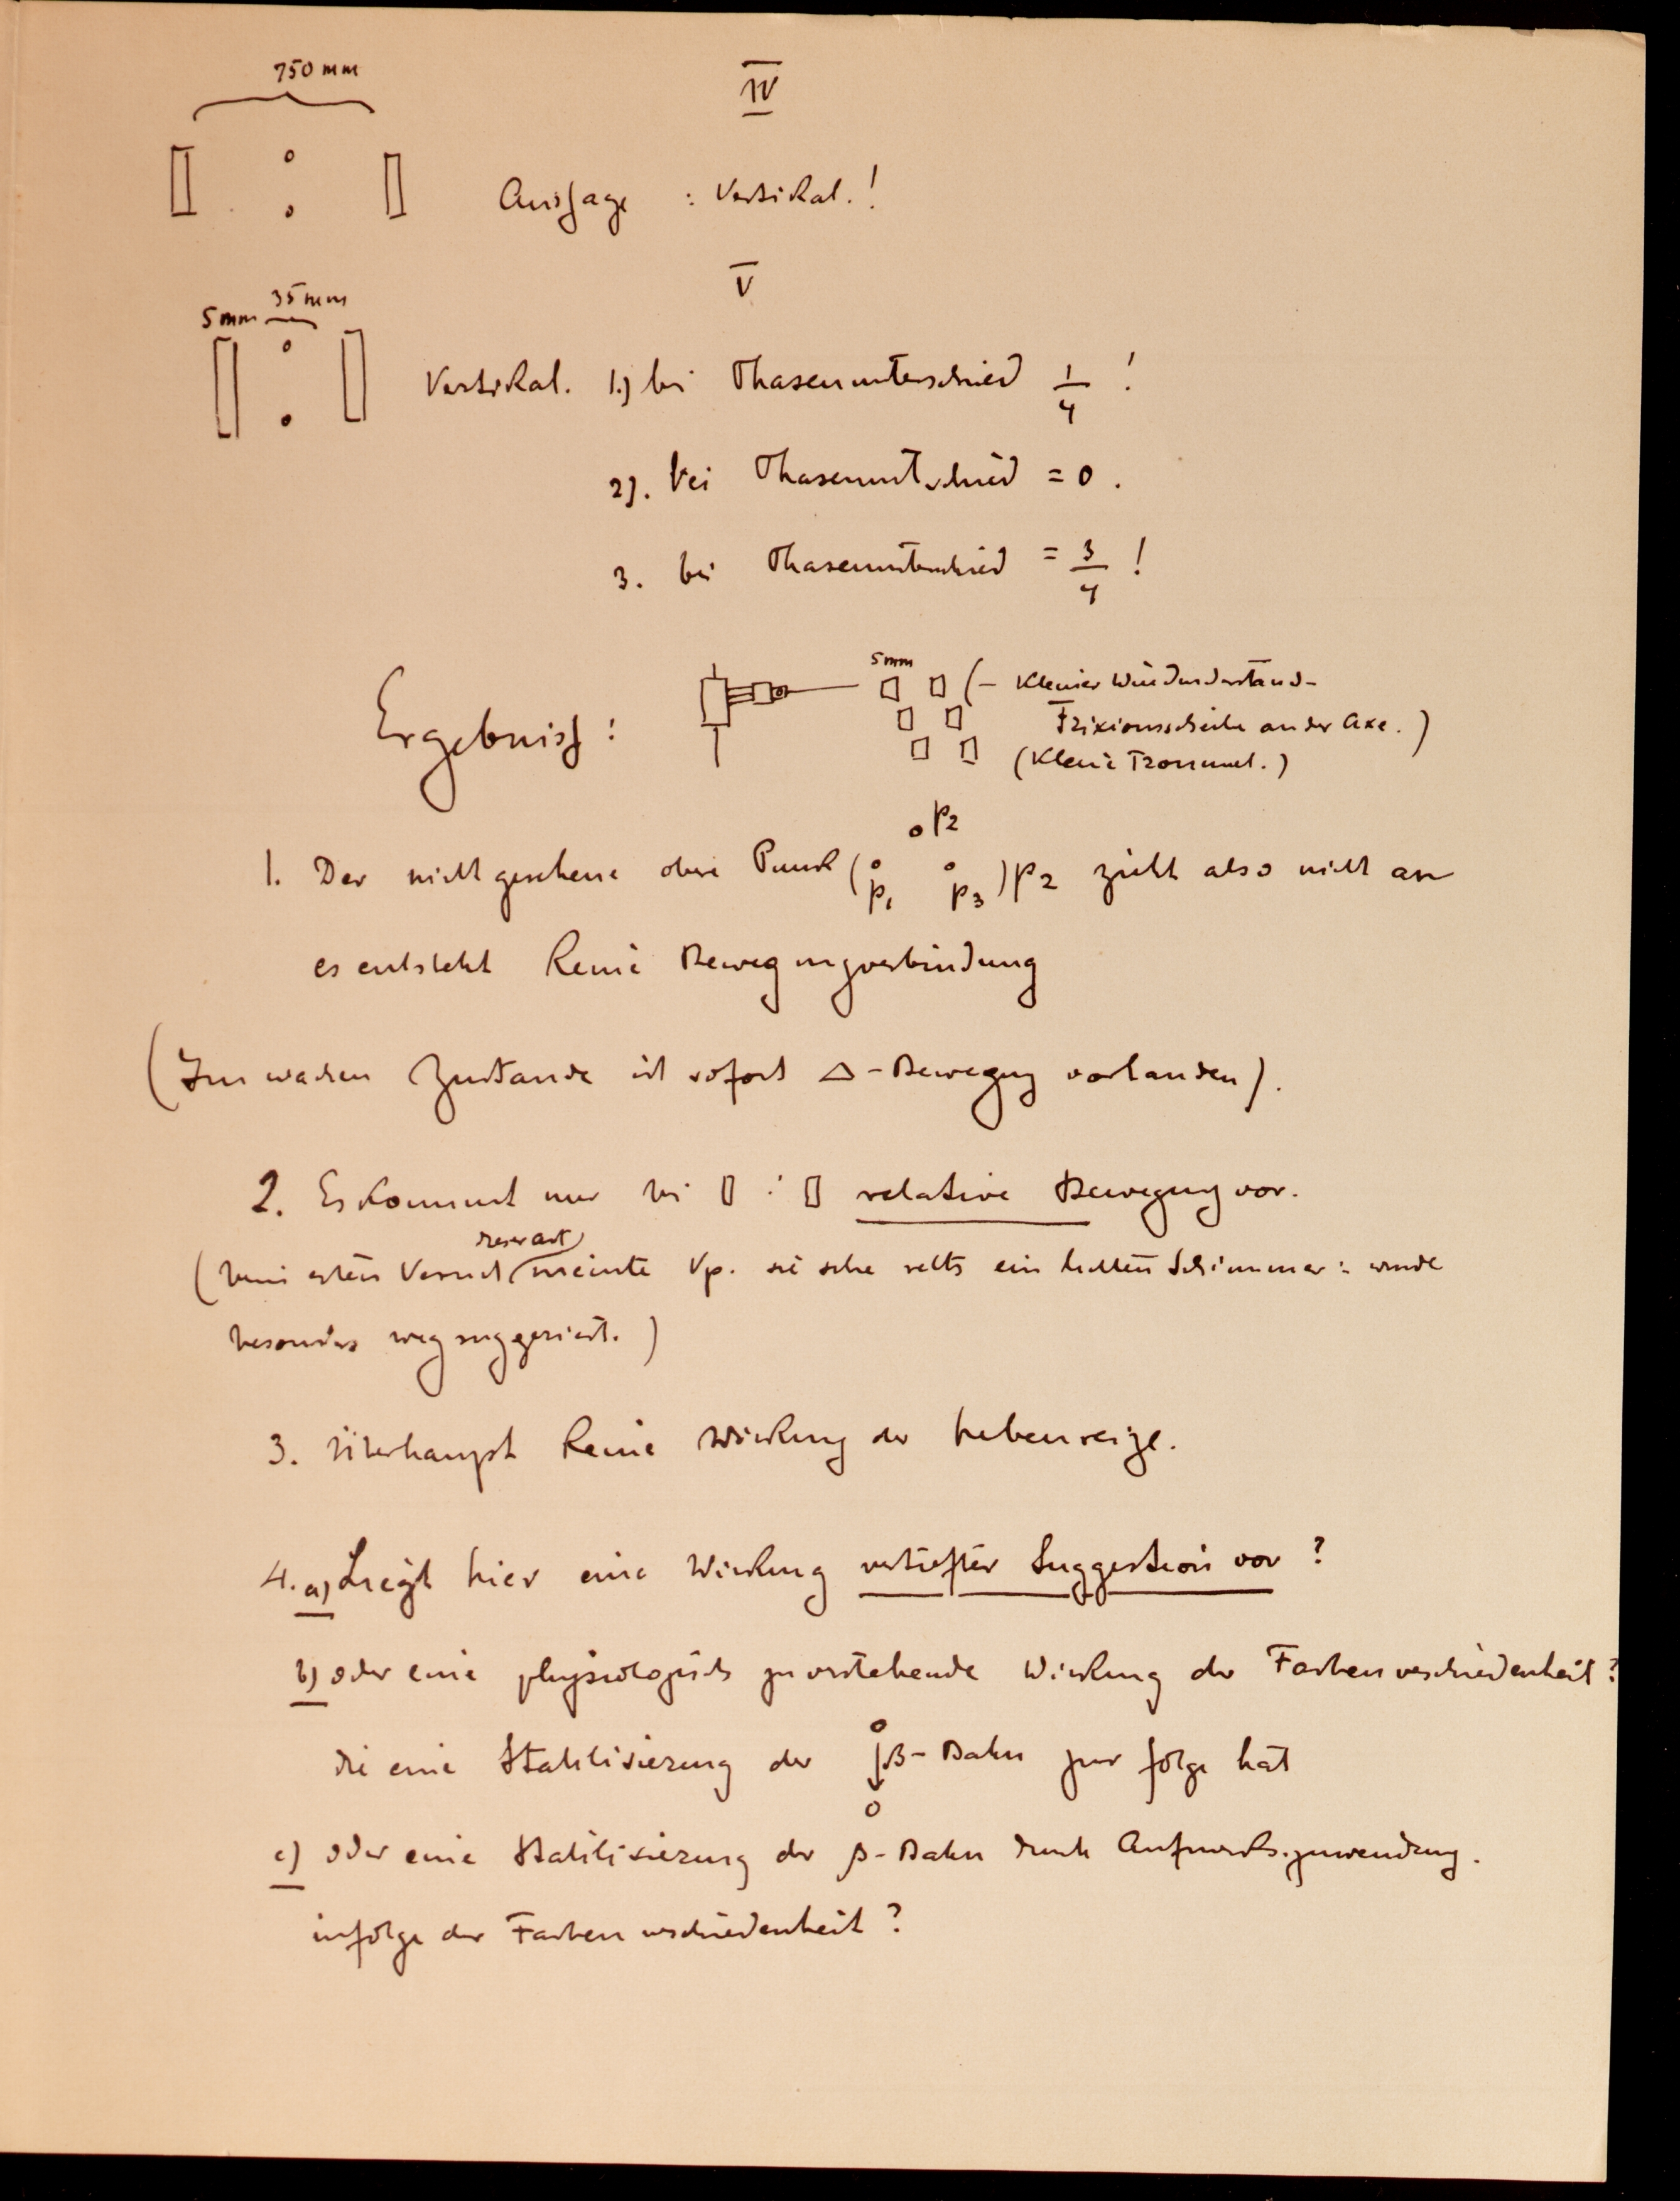 750 mm
IV
Aussage : Vertikal.!
V
35 mm
5 mm
Vertikal. 1.) bei Phasenunterschied 1/4 !
2). bei Phasenuntschied = 0.
3. bei Phasenunterschied = 3/4 !
Ergebniss:
5 mm
(- Kleiner
Frixionsscheibe an der Axe.)
(Kleine Trommel.)
p2
1. Der nicht gesehene obere Punkt ( p1 p3 ) p2 zieht also nicht an
es entsteht keine Bewegungverbindung
(Im wachen Zustande ist sofort Δ-Bewegung vorhanden).
2. Es kommt nur bei relative Bewegung vor.
(beim ersten Versuch meinte Vp. sie sehe rechts ein hellen Schimmer: wurde
besonders wegsuggeriert.)
3. Überhaupt keine Wirkung der Nebenreize.
4. a) Liegt hier eine Wirkung vertiefter Suggestion vor ?
b) oder eine physiologisch zu verstehende Wirkung der Farbenverschiedenheit ?
die eine Stabilisierung der β-Bahn zur folge hat
c) oder eine Stabilisierung der β-Bahn durch Aufmerks.zuwendung.
infolge der Farbenverschiedenheit ?